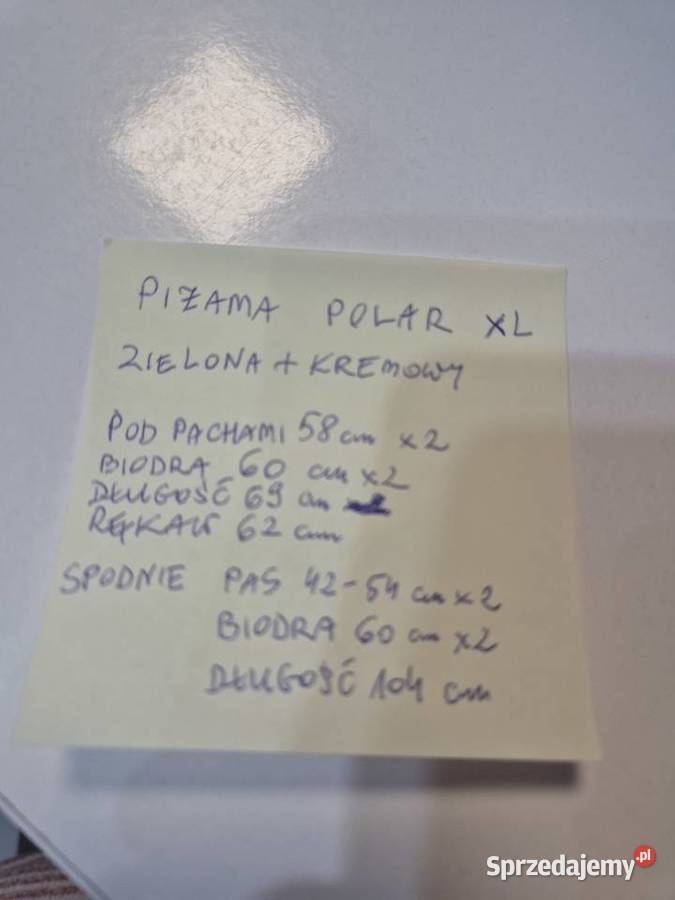 PIŻAMA POLAR XL
ZIELONA + KREMOWY
POD PACHAMI 58 cm x2
BIODRA 60 cm x2
DŁUGOŚĆ 69 cm
RĘKAW 62 cm
SPODNIE PAS 42-54 cm x2
BIODRA 60 cm x2
DŁUGOŚĆ 104 cm
Sprzedajemy.pl